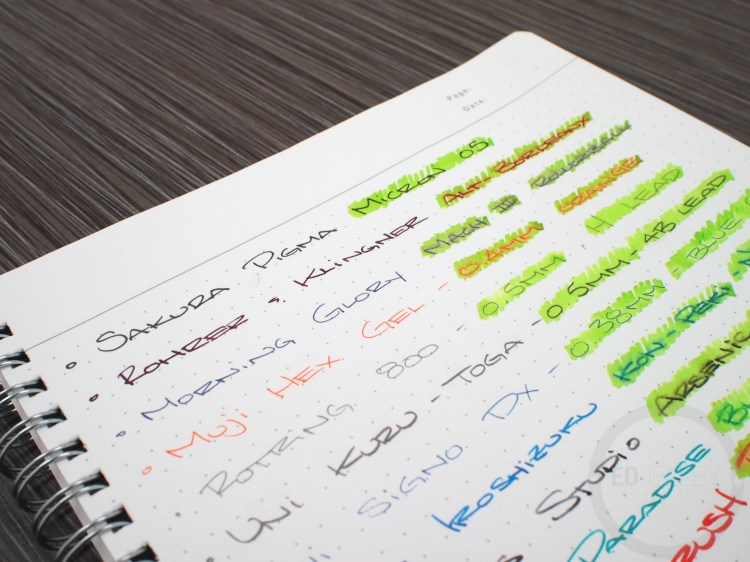 Page:
Date:
Sakura Pigma Micron 05
Rohrer & Klingner Alt Burlhanx
Morning Glory Mach III Rollerball
Muji Hex Gel - 0.4mm Orange
Rotring 800 - 0.5mm H Lead
Uni Kuru-Toga - 0.5mm - 4B Lead
Signo DX - 0.38mm - Blue
Iroshizuku Kon-Peki
Studio Arsenic
Paradise